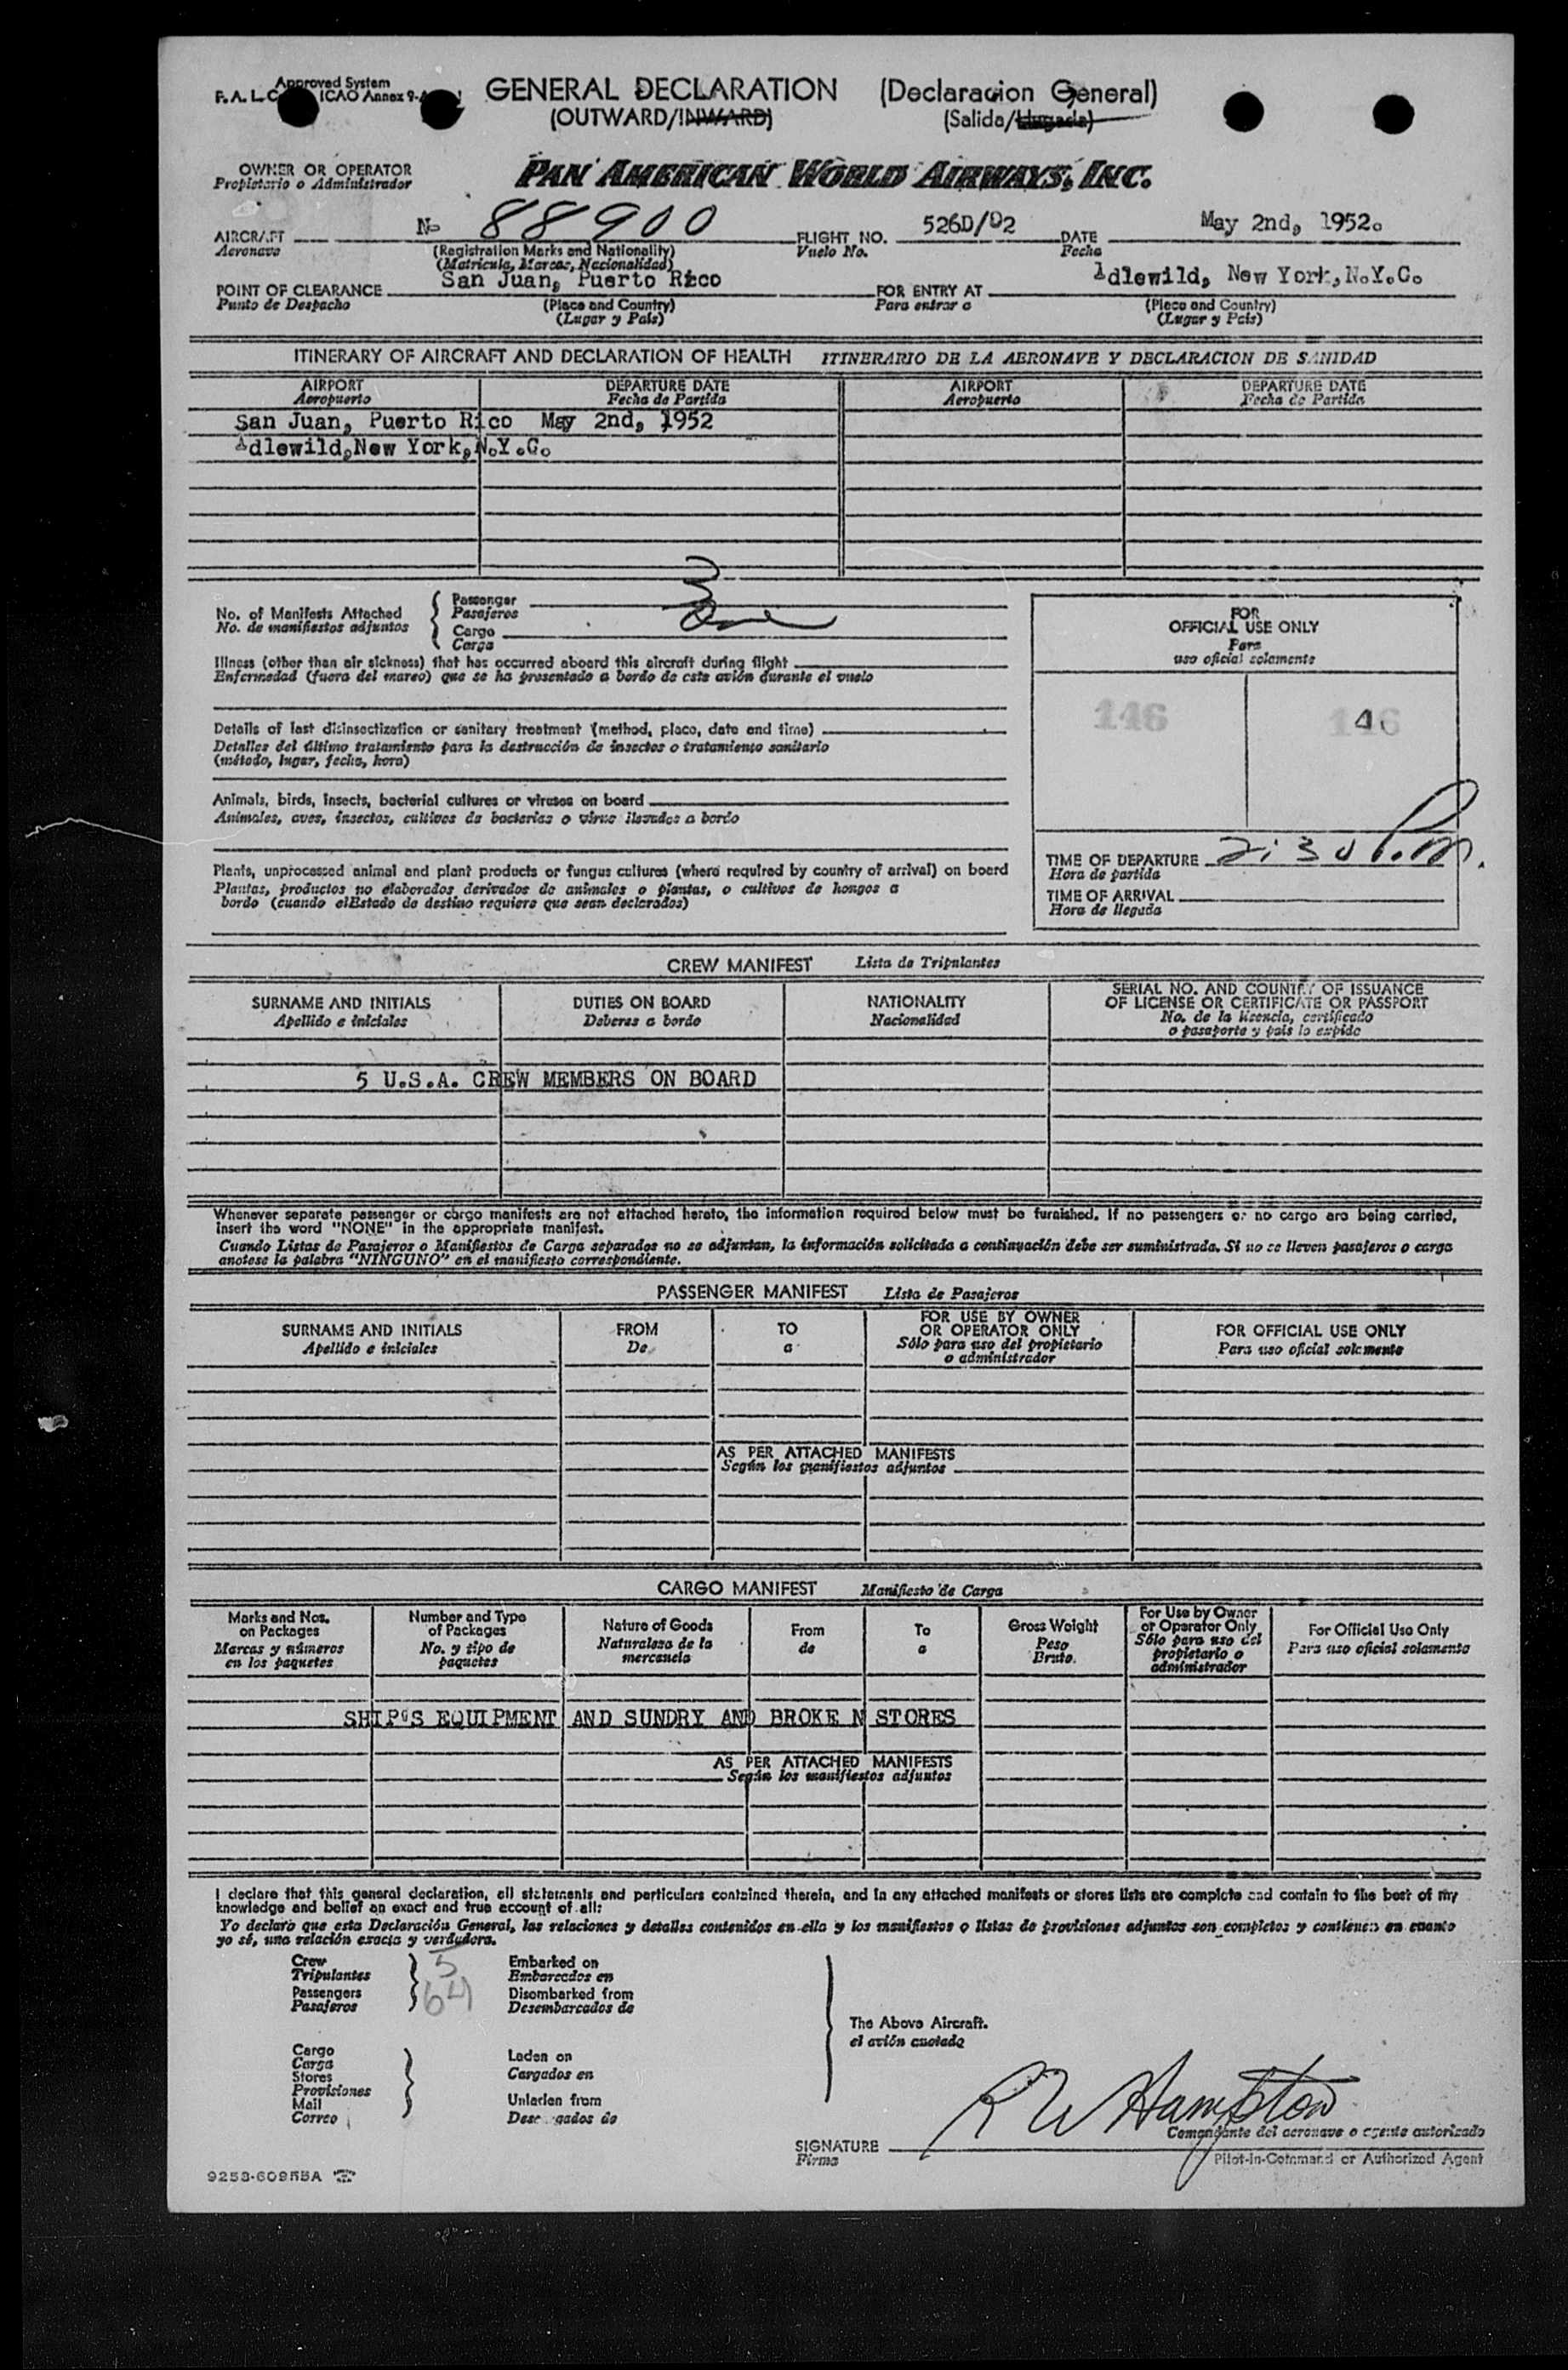 Approved System
F. A. L. C ICAO Annex 9-A
GENERAL DECLARATION (Declaracion General)
(OUTWARD/INWARD) (Salida/Llegada)
OWNER OR OPERATOR
Propietario o Administrador
PAN AMERICAN WORLD AIRWAYS, INC.
AIRCRAFT N- 88900 FLIGHT NO. 526D/02 DATE May 2nd, 1952.
Aeronave (Registration Marks and Nationality) Vuelo No. Fecha
(Matricula, Marcas, Nacionalidad)
POINT OF CLEARANCE San Juan, Puerto Rico FOR ENTRY AT Idlewild, New York, N.Y.C.
Punto de Despacho (Place and Country) Para entrar a (Place and Country)
(Lugar y País) (Lugar y Pais)
ITINERARY OF AIRCRAFT AND DECLARATION OF HEALTH ITINERARIO DE LA AERONAVE Y DECLARACION DE SANIDAD
AIRPORT DEPARTURE DATE AIRPORT DEPARTURE DATE
Aeropuerto Fecha de Partida Aeropuerto Fecha de Partida
San Juan, Puerto Rico May 2nd, 1952
Idlewild,New York,N.Y.C.
No. of Manifests Attached
No. de manifiestos adjuntos
Passenger 3
Pasajeros
Cargo One
Carga
Illness (other than air sickness) that has occurred aboard this aircraft during flight
Enfermedad (fuera del mareo) que se ha presentado a bordo de este avión durante el vuelo
Details of last disinsectization or sanitary treatment (method, place, date and time)
Detalles del último tratamiento para la destrucción de insectos o tratamiento sanitario
(método, lugar, fecha, hora)
Animals, birds, insects, bacterial cultures or viruses on board
Animales, aves, insectos, cultivos de bacterias o virus llevados a bordo
Plants, unprocessed animal and plant products or fungus cultures (where required by country of arrival) on board
Plantas, productos no elaborados derivados de animales o plantas, o cultivos de hongos a
bordo (cuando elEstado de destino requiere que sean declarados)
FOR
OFFICIAL USE ONLY
Para
uso oficial solamente
146 146
TIME OF DEPARTURE 2:30 P.m.
Hora de partida
TIME OF ARRIVAL
Hora de llegada
CREW MANIFEST Lista de Tripulantes
SURNAME AND INITIALS DUTIES ON BOARD NATIONALITY SERIAL NO. AND COUNTRY OF ISSUANCE
OF LICENSE OR CERTIFICATE OR PASSPORT
Apellido e iniciales Deberes a bordo Nacionalidad No. de la licencia, certificado
o pasaporte y pais lo expide
5 U.S.A. CREW MEMBERS ON BOARD
Whenever separate passenger or cargo manifests are not attached hereto, the information required below must be furnished. If no passengers or no cargo are being carried,
insert the word "NONE" in the appropriate manifest.
Cuando Listas de Pasajeros o Manifiestos de Carga separados no se adjuntan, la información solicitada a continuación debe ser suministrada. Si no se lleven pasajeros o carga
anotese la palabra "NINGUNO" en el manifiesto correspondiente.
PASSENGER MANIFEST Lista de Pasajeros
SURNAME AND INITIALS FROM TO FOR USE BY OWNER
OR OPERATOR ONLY FOR OFFICIAL USE ONLY
Apellido e iniciales De a Sólo para uso del propietario
o administrador Para uso oficial solamente
AS PER ATTACHED MANIFESTS
Según los manifiestos adjuntos
CARGO MANIFEST Manifiesto de Carga
Marks and Nos.
on Packages
Marcas y números
en los paquetes
Number and Type
of Packages
No. y tipo de
paquetes
Nature of Goods
Naturaleza de la
mercancia
From
de
To
a
Gross Weight
Peso
Bruto.
For Use by Owner
or Operator Only
Sólo para uso del
propietario o
administrador
For Official Use Only
Para uso oficial solamente
SHIP'S EQUIPMENT AND SUNDRY AND BROKE N STORES
AS PER ATTACHED MANIFESTS
Según los manifiestos adjuntos
I declare that this general declaration, all statements and particulars contained therein, and in any attached manifests or stores lists are complete and contain to the best of my
knowledge and belief an exact and true account of all:
Yo declaro que esta Declaración General, las relaciones y detalles contenidos en ella y los manifiestos o listas de provisiones adjuntos son completos y contienen en cuanto
yo sé, una relación exacta y verdadera.
Crew 5 Embarked on
Tripulantes Embarcados en
Passengers 64 Disembarked from
Pasajeros Desembarcados de
The Above Aircraft.
el avión anotado
Cargo
Carga
Stores
Provisiones
Mail
Correo
Laden on
Cargados en
Unladen from
Desc gados de
SIGNATURE R W Hampton
Firma
Comandante del aeronave o agente autorizado
Pilot-in-Command or Authorized Agent
9253-60955A